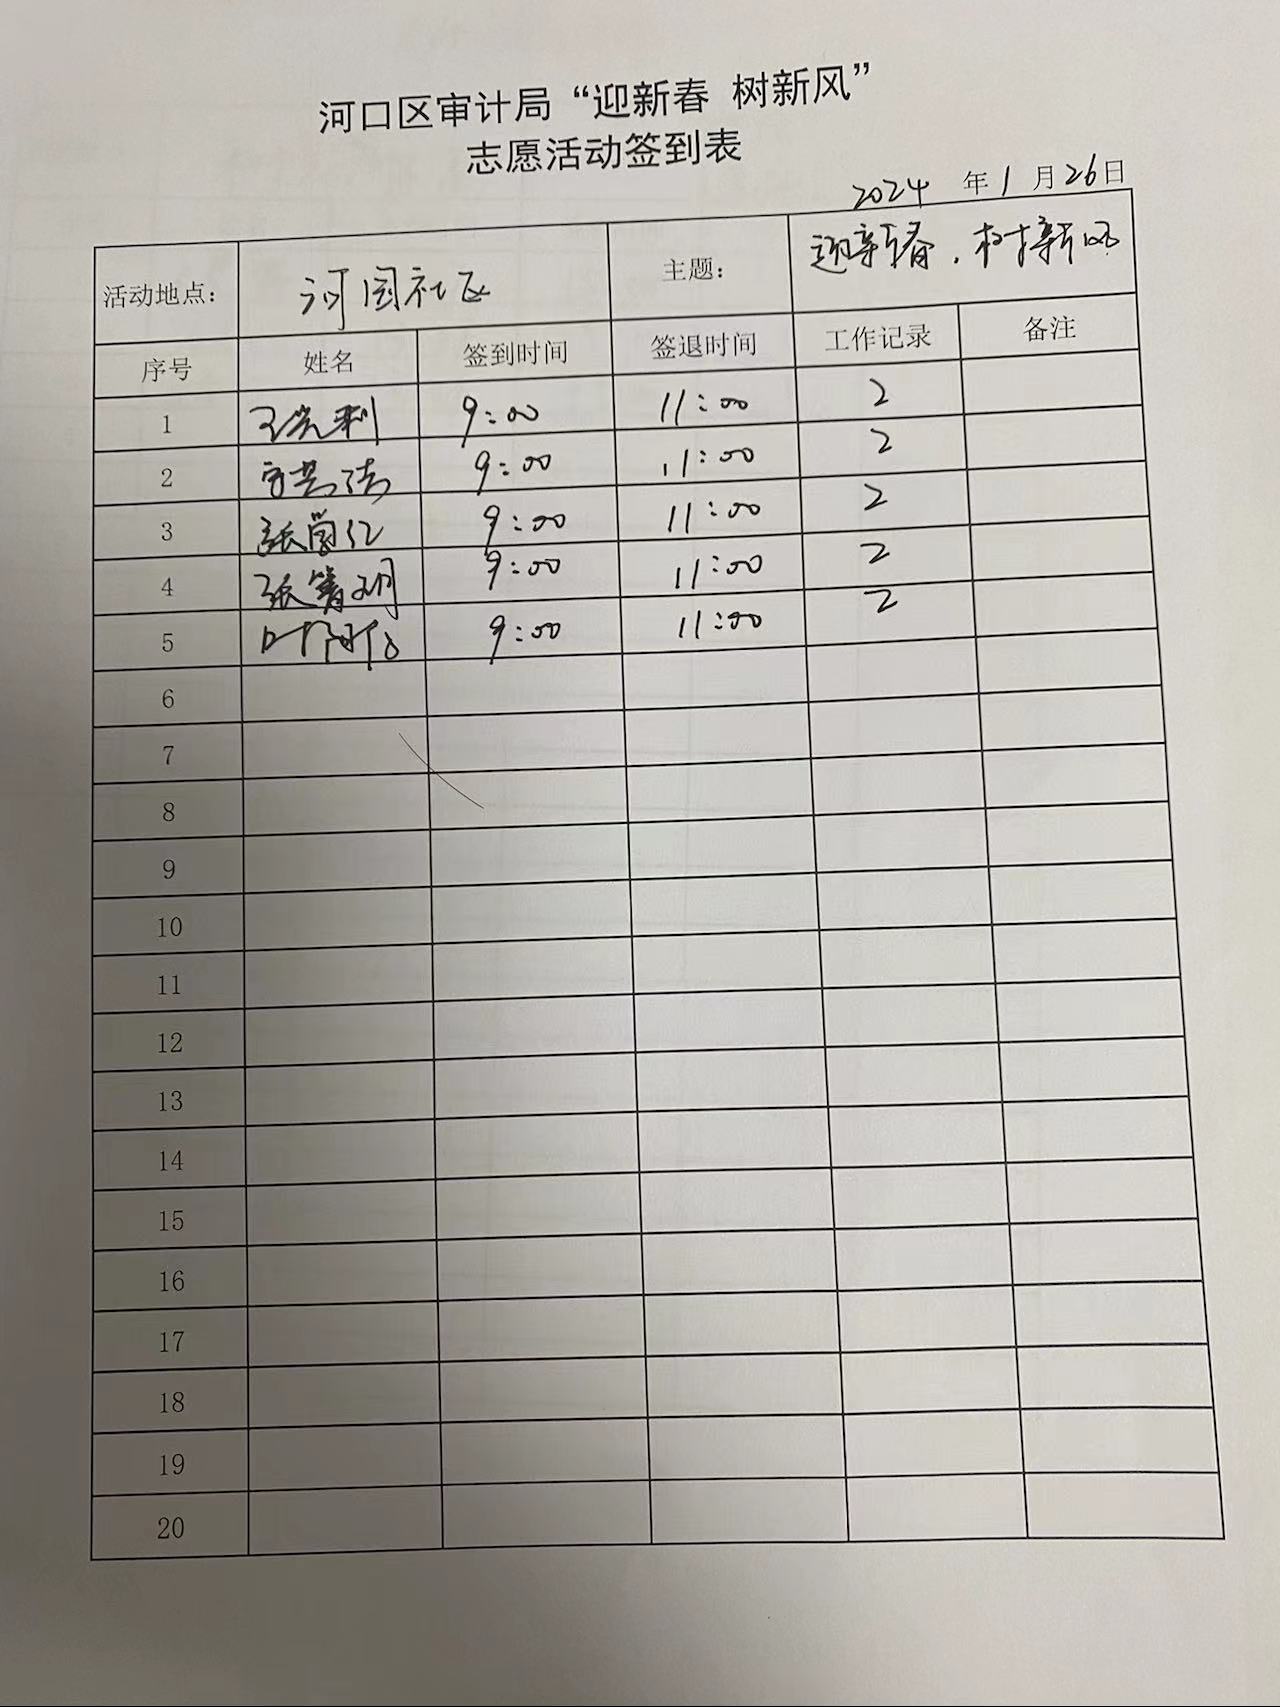 河口区审计局“迎新春 树新风”
志愿活动签到表
2024 年 1 月 26 日
活动地点： 河园社区 主题： 迎新春，树新风
序号 姓名 签到时间 签退时间 工作记录 备注
1 9:00 11:00 2
2 9:00 11:00 2
3 9:00 11:00 2
4 张 9:00 11:00 2
5 叶 9:00 11:00 2
6
7
8
9
10
11
12
13
14
15
16
17
18
19
20